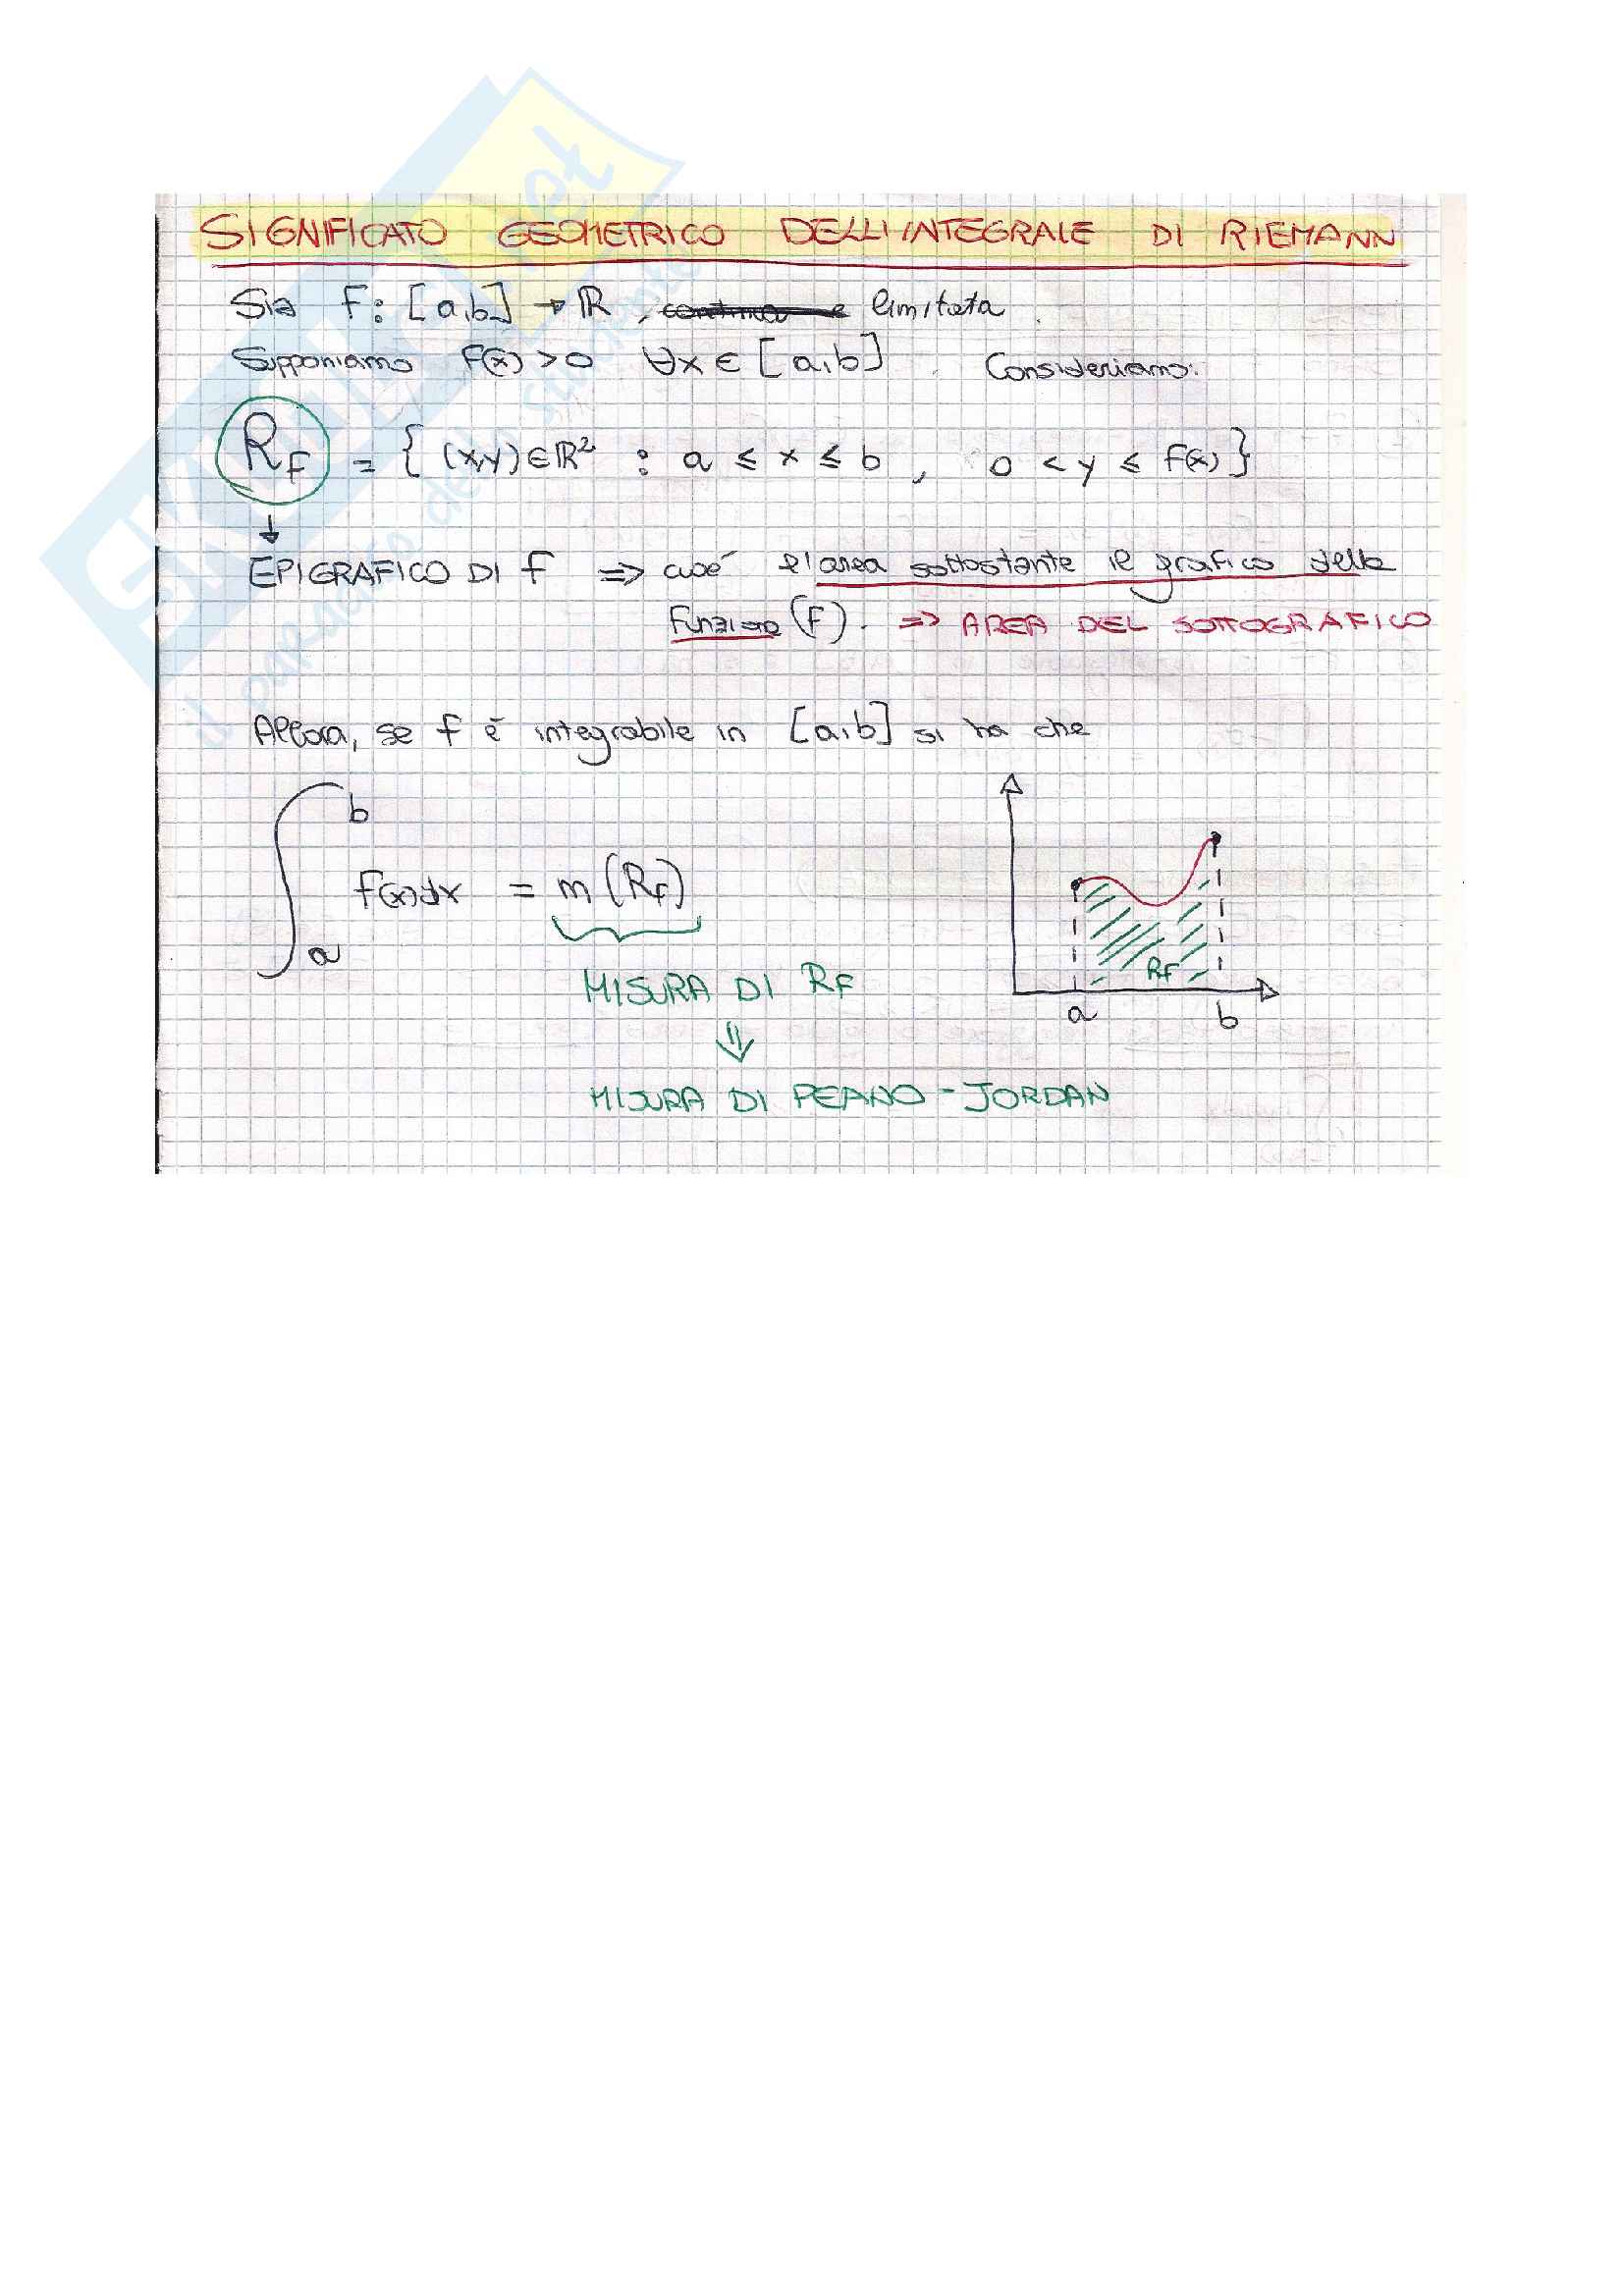 SIGNIFICATO GEOMETRICO DELL'INTEGRALE DI RIEMANN
Sia f: [a,b] → ℝ, continua e limitata.
Supponiamo f(x) > 0 ∀x ∈ [a,b]. Consideriamo:
Rf = { (x,y) ∈ ℝ² : a ≤ x ≤ b , 0 < y ≤ f(x) }
↓
EPIGRAFICO DI f ⇒ cioé l'area sottostante il grafico della
funzione (f). ⇒ AREA DEL SOTTOGRAFICO
Allora, se f è integrabile in [a,b] si ha che
∫ b
f(x)dx = m (Rf)
a
MISURA DI Rf
⇓
MISURA DI PEANO - JORDAN
Rf
a b
SKUOLA.net
il paradiso dello studente